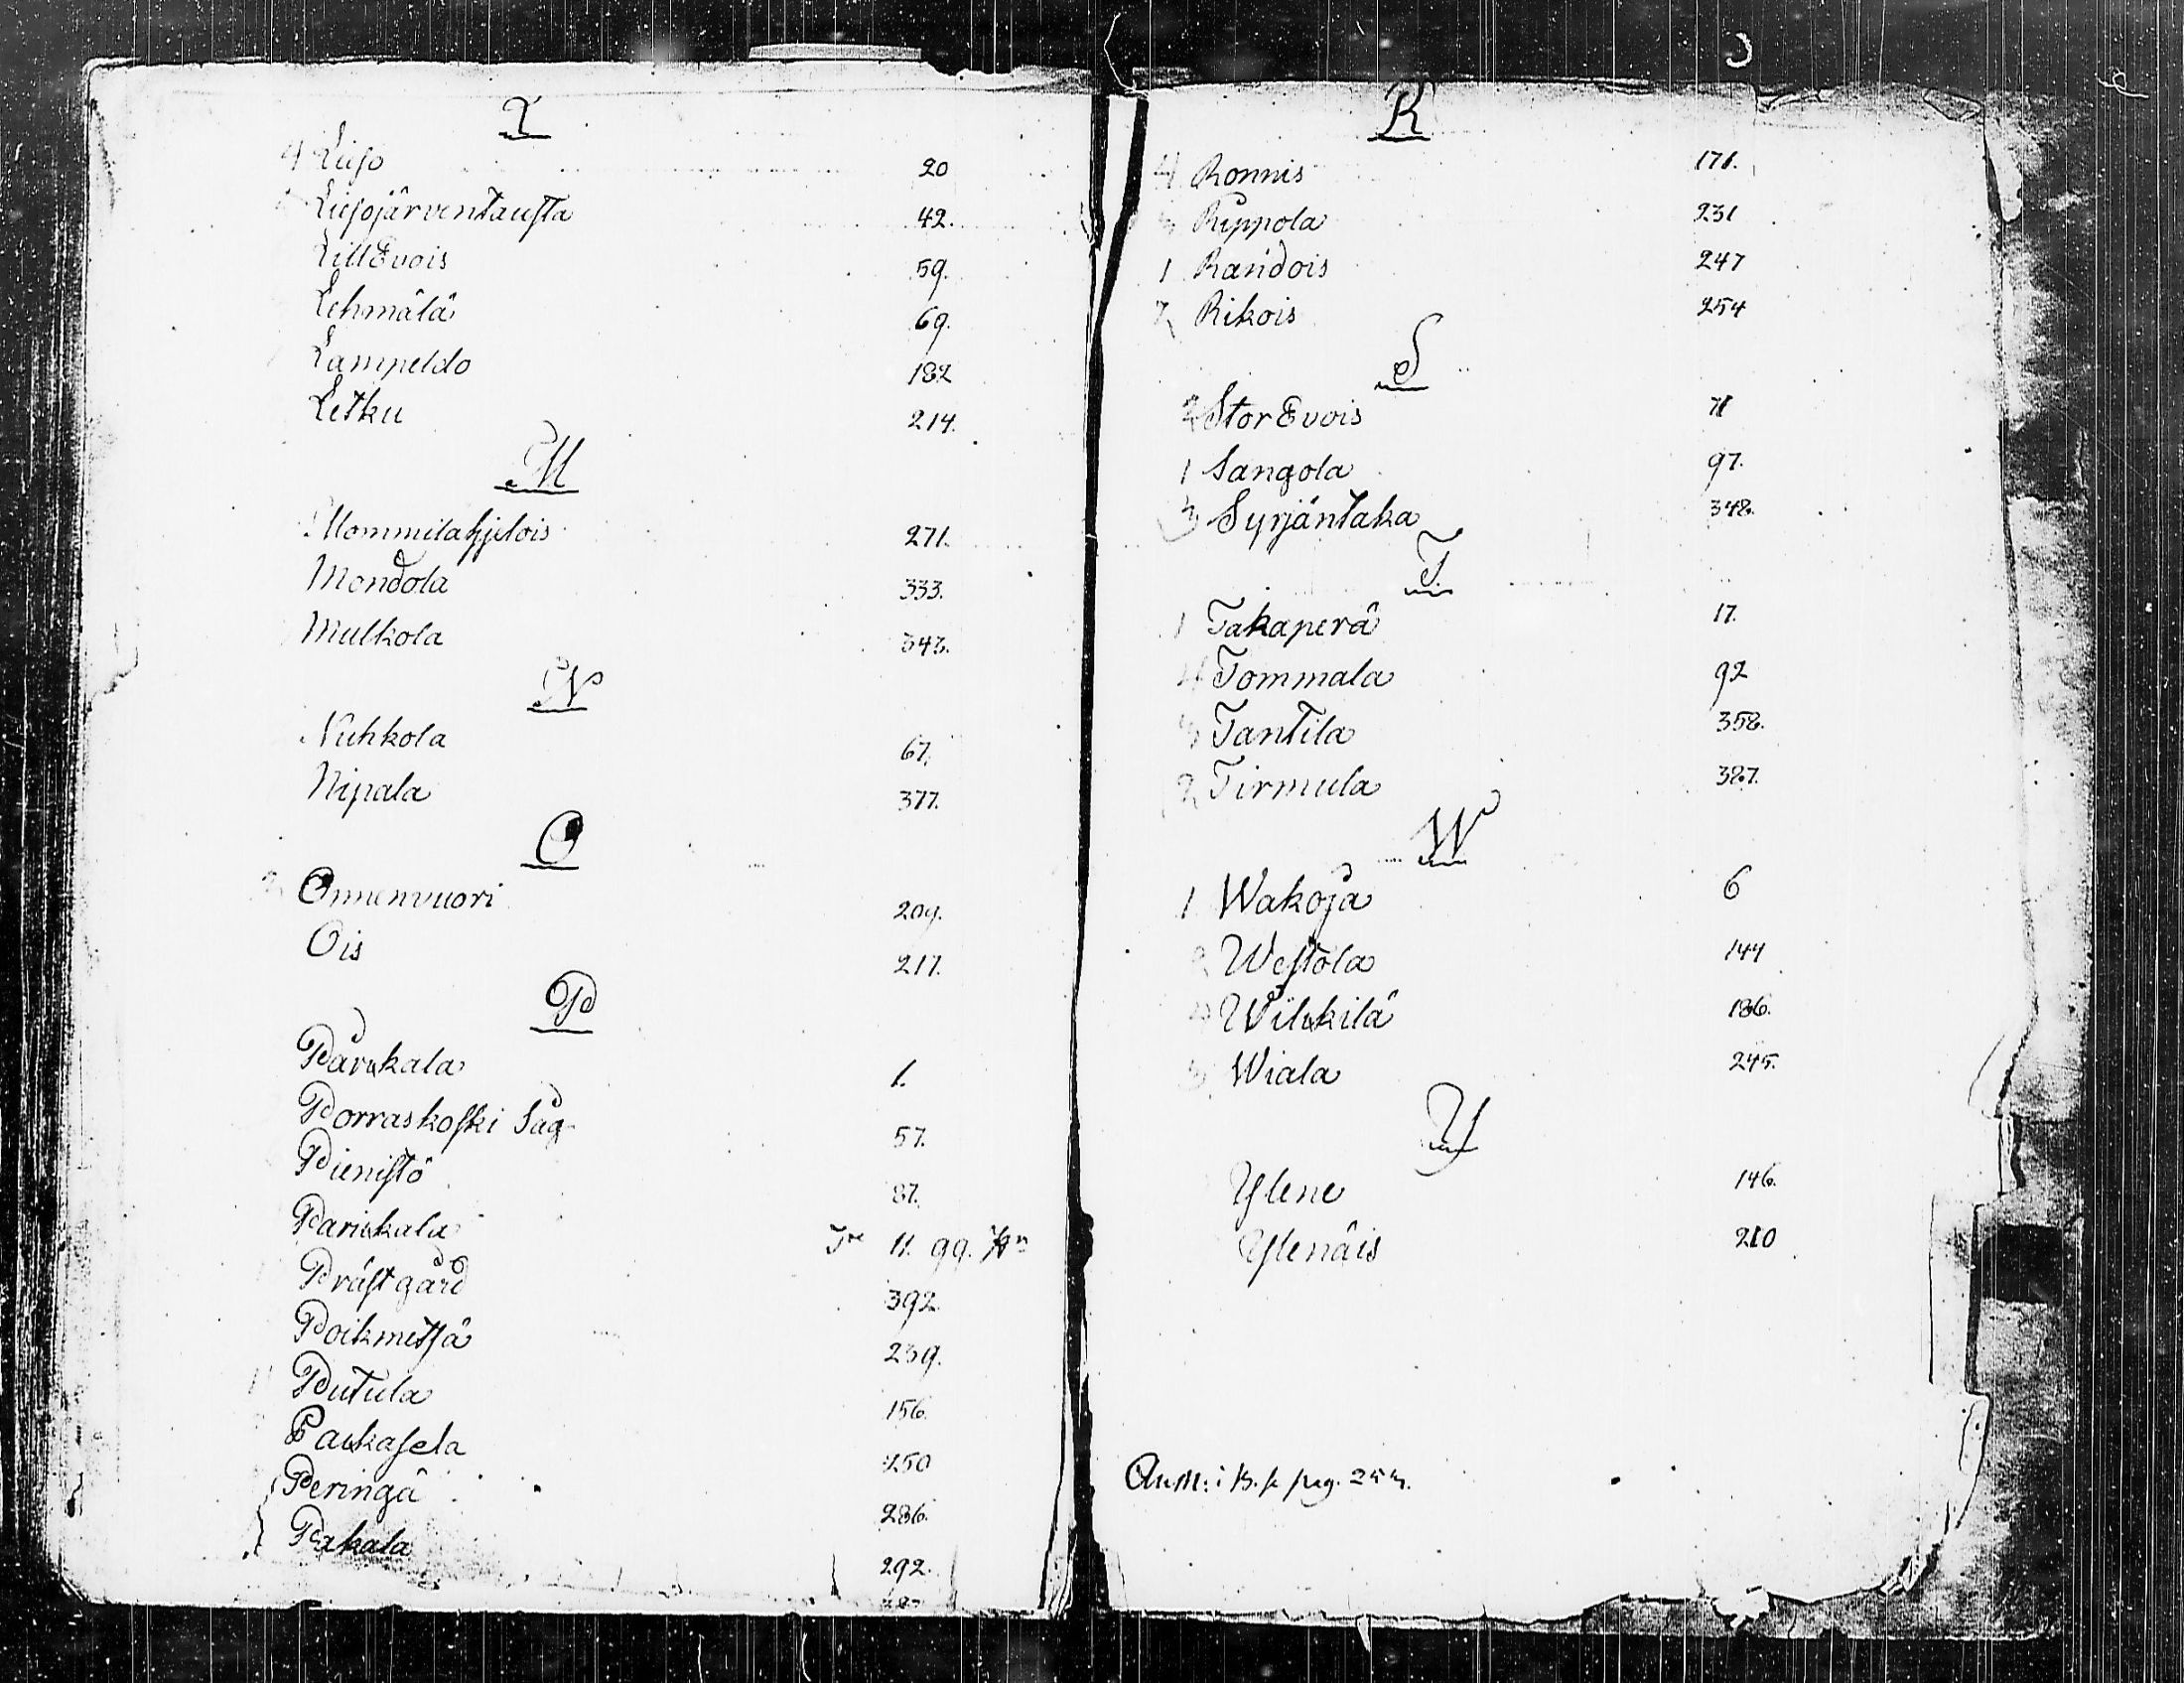 L
4 Lieso 20
Liesojärventausta 42.
Lill Evois 59.
Lehmälä 69.
Lampeldo 182
Letku 214.
M
Mommilahjelois 271.
Mondola 333.
Mulkola 343.
N
Nuhkola 67.
Nipala 377.
O
2 Onnenvuori 209.
Ois 217.
P
Parikkala 1.
Porraskoski Såg 57.
Pienistö 87.
Parikkala 11. 99.
Prästgård 392.
Poikmetsä 239.
Putula 156.
Paukasela 250
Peringä 286.
Pakala 292.
R
4 Ronnis 171.
Rippola 231
1 Raridois 247
2 Rikois 254
S
2 Stor Evois 71
1 Sangola 97.
3 Syrjäntaka 348.
T
1 Takaperä 17.
4 Tommala 92
3 Tantila 358.
2 Tirmula 387.
W
1 Wakoja 6
2 Westola 144
Wilkkilä 186.
3 Wiala 245.
Y
Ylene 146.
Ylenäis 210
pag. 253.